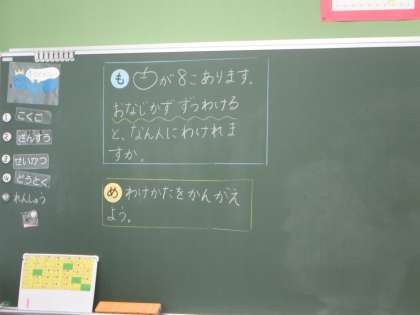 ① こくご
② さんすう
③ せいかつ
④ どうとく
れんしゅう
も
が8こあります。
おなじかずずつわける
と、なん人にわけれま
すか。
め わけかたをかんがえ
よう。